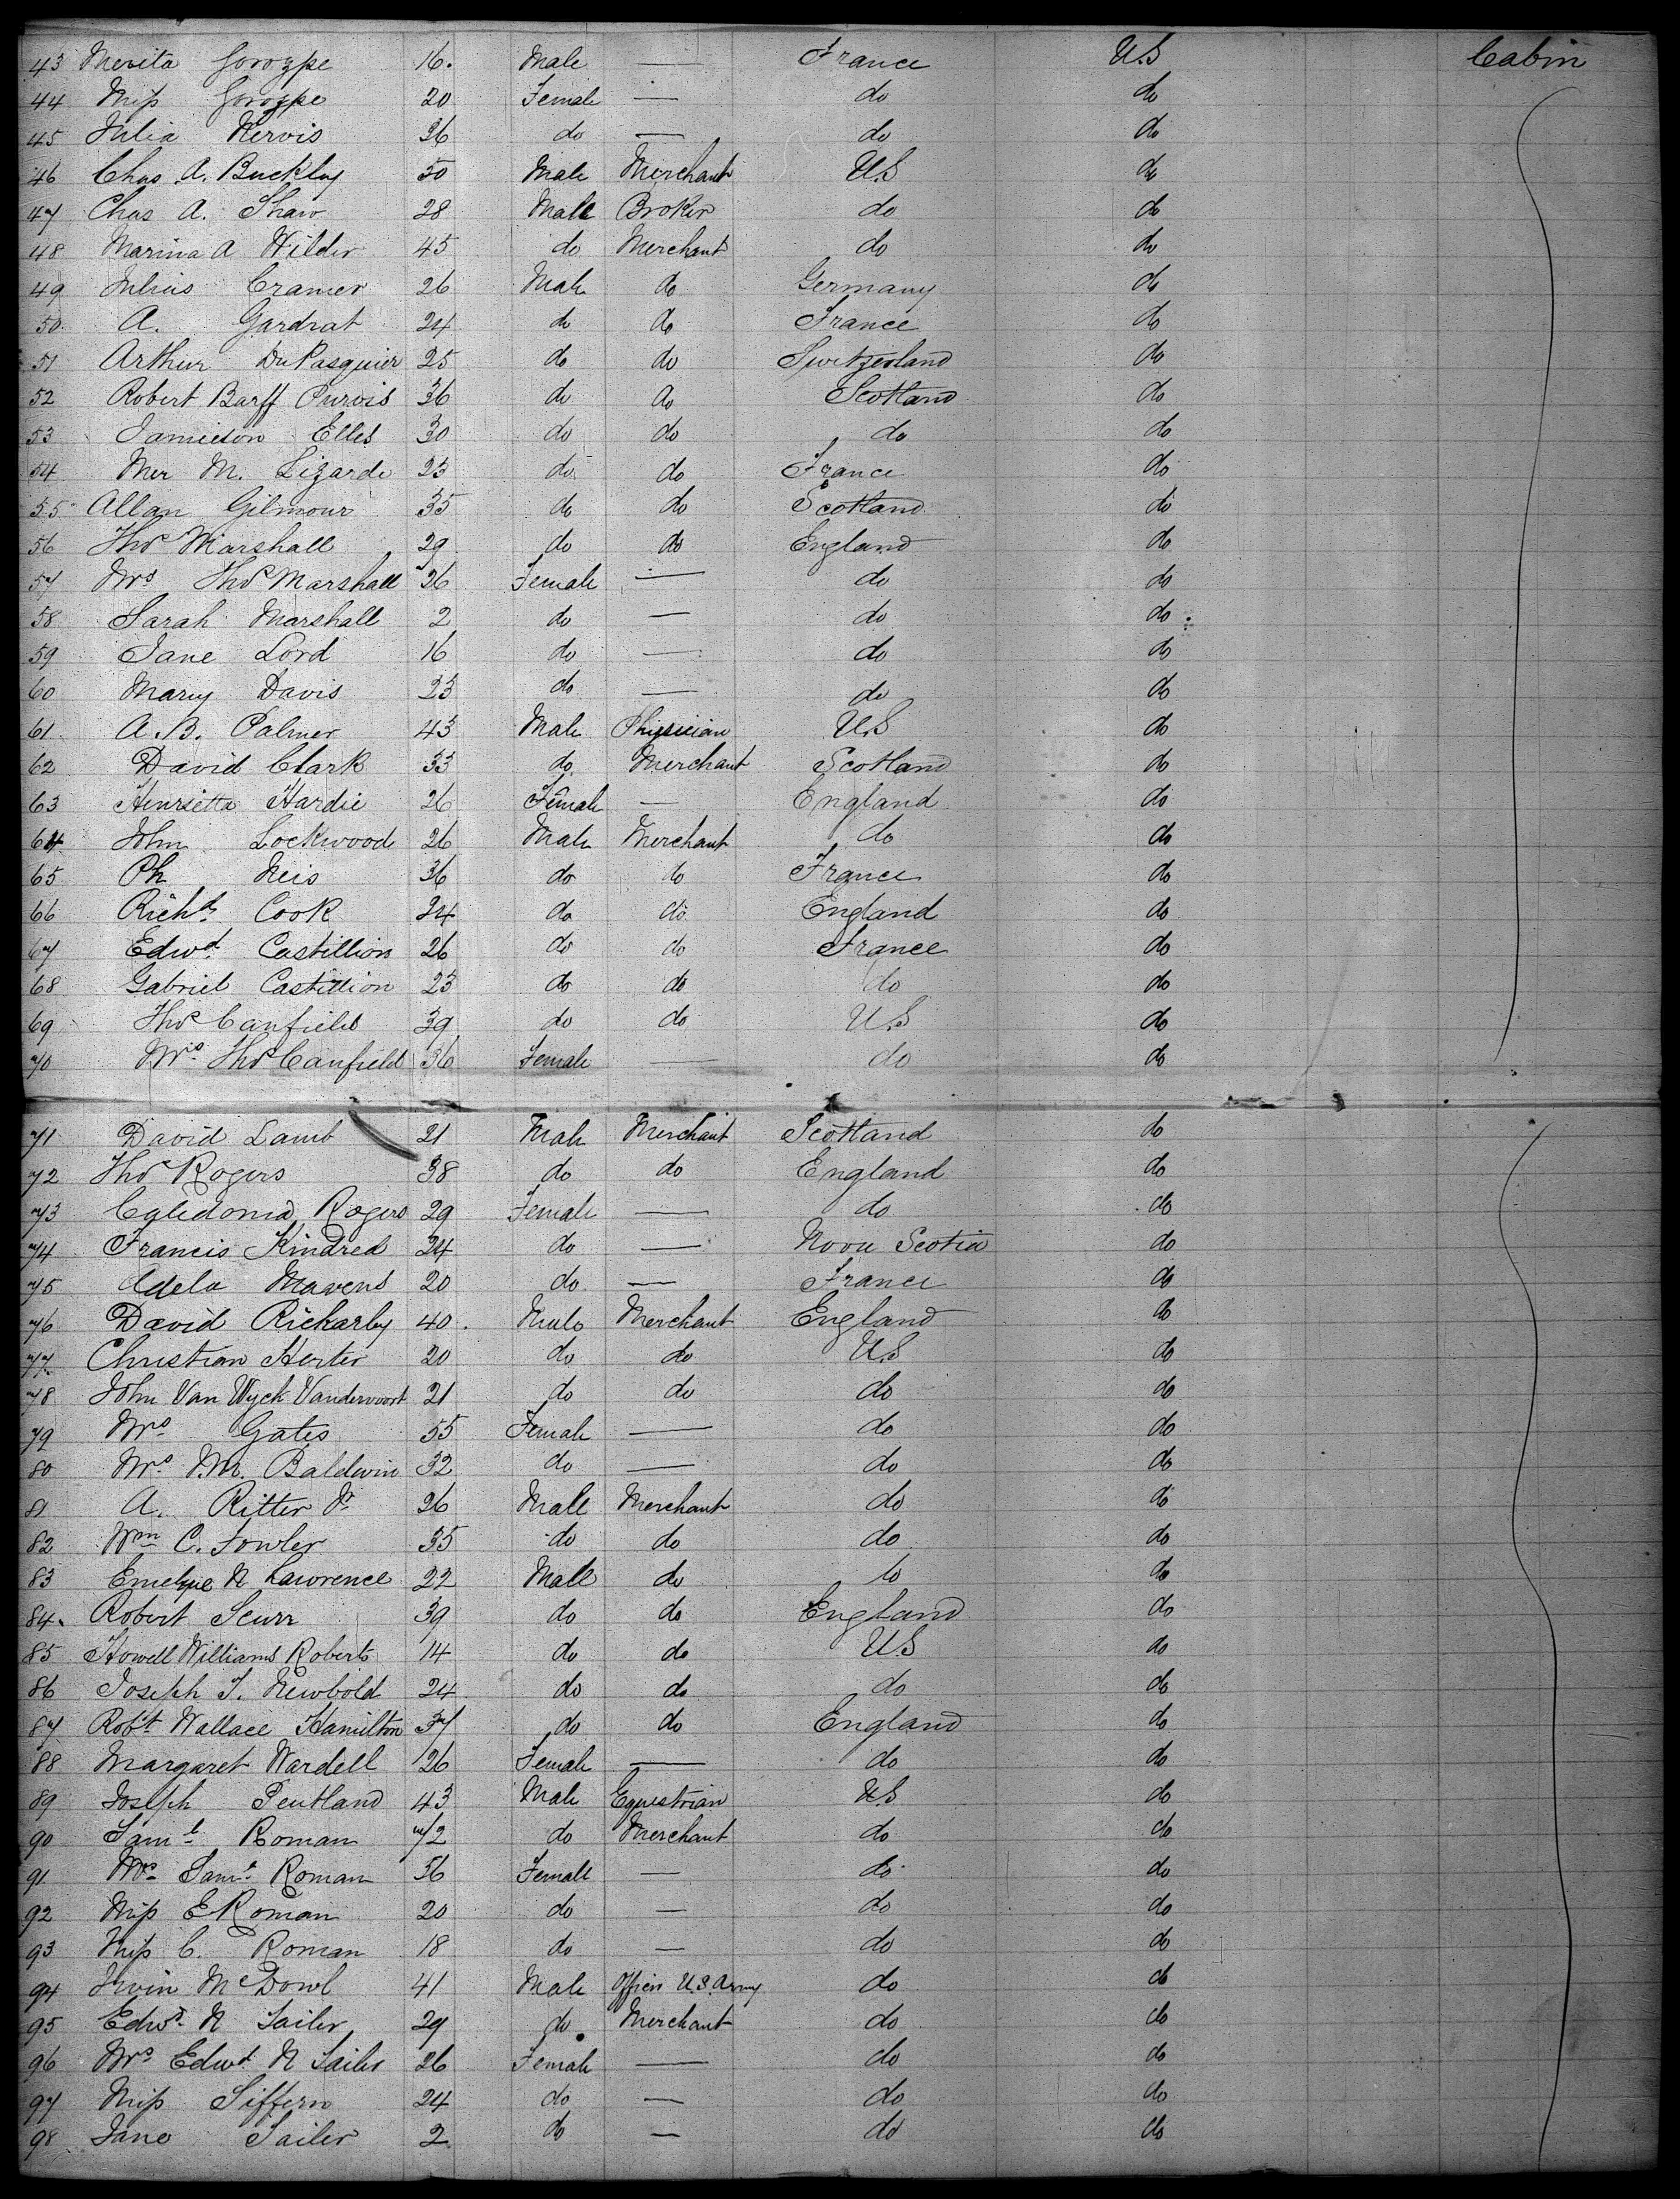 43 Merita Gorozpe 16. Male — France U.S Cabin
44 Miss Gorozpe 20 Female — do do
45 Julia Nervis 36 do — do do
46 Chas. A. Buckley 50 Male Merchant U.S do
47 Chas A. Shaw 28 Male Broker do do
48 Marina A Wilder 45 do Merchant do do
49 Julius Cramer 26 Male do Germany do
50. A. Gardrat 24 do do France do
51 Arthur DuPasquier 25 do do Switzerland do
52 Robert Barff Purvis 36 do do Scotland do
53 Jamieson Elles 30 do do do do
54 Mer M. Lizardi 23 do do France do
55 Allan Gilmour 35 do do Scotland do
56 Thos Marshall 29 do do England do
57 Mrs Thos Marshall 26 Female — do do
58 Sarah Marshall 2 do — do do
59 Jane Lord 16 do — do do
60 Mary Davis 23 do — do do
61 A. B. Palmer 43 Male Physician U.S do
62 David Clark 33 do Merchant Scotland do
63 Henrietta Hardie 26 Female — England do
64 John Lockwood 26 Male Merchant do do
65 Ph Neis 36 do do France do
66 Richd Cook 24 do do England do
67 Edwd Castillion 26 do do France do
68 Gabriel Castillion 23 do do do do
69 Thos Canfield 39 do do U.S do
70 Mrs Thos Canfield 36 Female — do do
71 David Lamb 21 Male Merchant Scotland do
72 Thos Rogers 38 do do England do
73 Caledonia Rogers 29 Female — do do
74 Francis Kindred 24 do — Nova Scotia do
75 Adela Mavens 20 do — France do
76 David Rickarby 40. Male Merchant England do
77 Christian Herter 20 do do U.S do
78 John Van Wyck Vandervoort 21 do do do do
79 Mrs Gates 55 Female — do do
80 Mrs Baldwin 32 do — do do
81 A. Ritter Jr 26 Male Merchant do do
82 Wm C. Fowler 35 do do do do
83 N Lawrence 22 Male do do do
84. Robert Scurr 39 do do England do
85 Howell Williams Roberts 14 do do U.S do
86 Joseph T. Newbold 24 do do do do
87 Robt Wallace Hamilton 37 do do England do
88 Margaret Wardell 26 Female — do do
89 Joseph Pentland 43 Male Equestrian U.S do
90 Saml Roman 72 do Merchant do do
91 Mrs Saml Roman 56 Female — do do
92 Miss E Roman 20 do — do do
93 Miss C. Roman 18 do — do do
94 Irvin McDowl 41 Male Officer U.S. Army do do
95 Edwd N Sailer 29 do Merchant do do
96 Mrs Edwd N Sailer 26 Female — do do
97 Miss Siffern 24 do — do do
98 Jane Sailer 2 do — do do